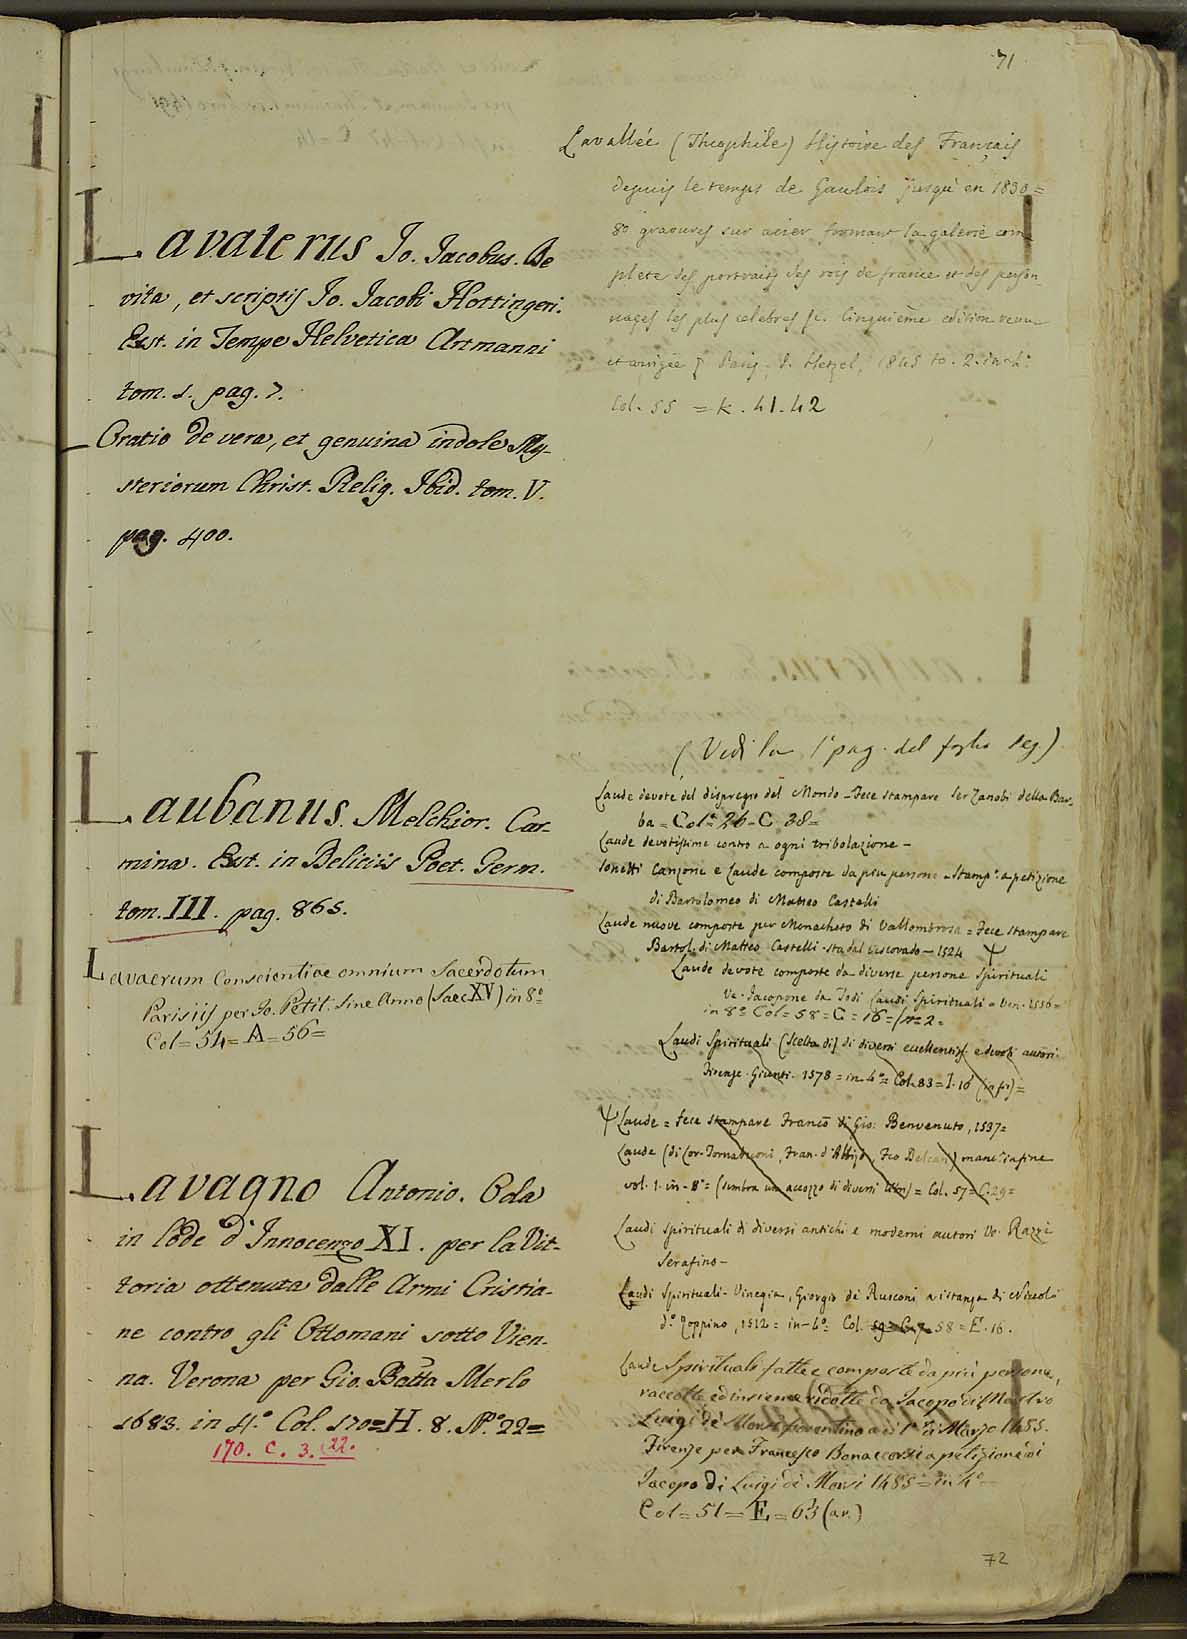 71
Lavaterus Jo. Jacobus. De
vita, et scriptis Jo. Jacobi Hottingeri.
Est. in Tempe Helvetica Artmanni
tom. 1. pag. 7.
Oratio de vera, et genuina indole My-
steriorum Christ. Relig. Ibid. tom. V.
pag. 400.
Laubanus. Melchior. Car-
mina. Ext. in Deliciis Poet. Germ.
tom. III. pag. 865.
Lavacrum Conscientiae omnium Sacerdotum
Parisiis per Jo. Petit. sine Anno (Saec XV) in 8º
Col = 54 = A = 56 =
Lavagno Antonio. Oda
in lode d'Innocenzo XI. per la Vit-
toria ottenuta dalle Armi Cristia-
ne contro gli Ottomani sotto Vien-
na. Verona per Gio. Batta Merlo
1683. in 4.º Col. 170 = H. 8. Nº. 22 =
170. C. 3. 22.
Lavallée (Theophile) Histoire des Français
depuis le temps de Gaulois jusqu'en 1830 =
80 gravures sur acier fromant la galerie com
plete des portraits des rois de france et des person
nages les plus celebres &c. Cinquième edition revue
et corrigée Paris. J. Hetzel, 1845 to. 2. in ch:
Col. 55 = K. 41. 42
(Vedi la 1ª pag. del foglio seg.)
Laude devote del dispregio del Mondo - Fece stampare Ser Zanobi della Bar-
ba = Colª 26 - C 38 =
Laude devotissime contro a ogni tribolazione -
Sonetti Canzoni e Laude composte da piu persone - Stampº. a petizione
di Bartolomeo di Matteo Castelli
Laude nuove composte per Monacheto di Vallombrosa = Fece stampare
Bartol. di Matteo Castelli - sta dal vescovado - 1524 Ψ
Laude devote composte da diverse persone spirituali
Ve. Jacopone da Todi Laudi Spirituali = Ven. 1556 =
in 8º Col = 58 = C = 16 = = 2 =
Laudi Spirituali (Scelta di) di diversi eccellentiss. e devoti autori
Firenze. Giunti. 1578 = in 4º = Col. 83 = I. 16 =
Ψ Laude = Fece stampare Franco di Gio: Benvenuto, 1537 =
Laude (di Lor. Tornabuoni, Fran. d'Albizo, Feo Belcari) manc.' in fine
vol. 1. in - 8º = (sembra un accozzo di diversi libri) = Col. 57 = C. 29 =
Laudi spirituali di diversi antichi e moderni autori Ve. Razzi
Serafino -
Laudi Spirituali - Vinegia, Giorgio de Rusconi a istanza di Nicolò
d.º Zoppino, 1512 = in - 4º Col. 58 = E. 16.
Laude Spirituali fatte e composte da più persone,
raccolte ed insieme ridotte da Jacopo di Maestro
Luigi de Morsi fiorentino a dì 1º di Marzo 1485.
Firenze per Francesco Bonaccorsi a petizione di
Jacopo di Luigi de Morsi 1485 = in 4º =
Col = 51 = E = 63 (av.)
72